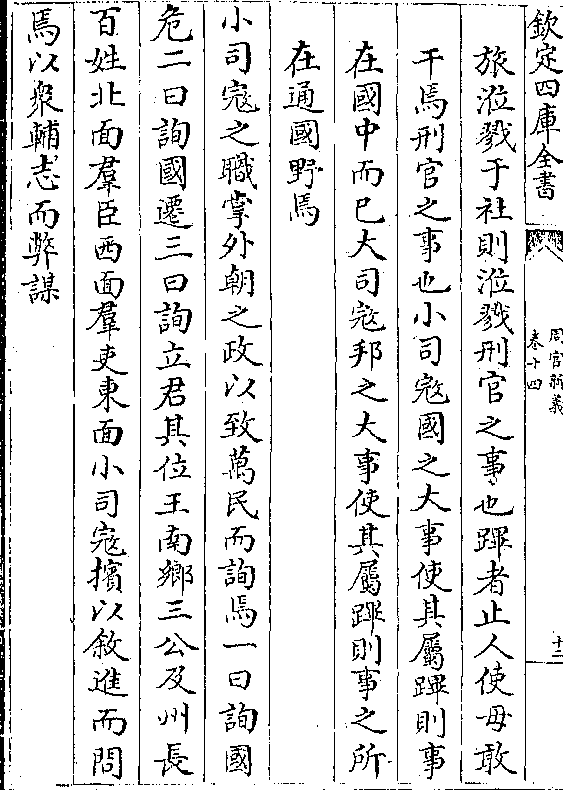 欽定四庫全書
周官新義
卷十四
十二
旅涖戮于社則涖戮刑官之事也蹕者止人使毋敢
干焉刑官之事也小司寇國之大事使其屬蹕則事
在國中而已大司寇邦之大事使其屬蹕則事之所
在通國野焉
小司寇之職掌外朝之政以致萬民而詢焉一曰詢國
危二曰詢國遷三曰詢立君其位王南鄉三公及州長
百姓北面羣臣西面羣吏東面小司寇擯以敘進而問
焉以衆輔志而弊謀